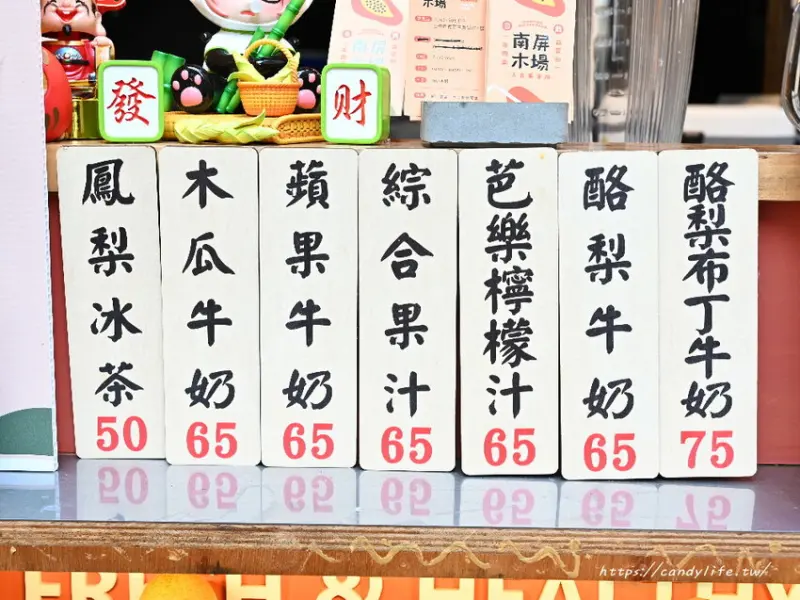 發
财
木場
南屏
木場
南屏
木場
鳳梨冰茶
50
木瓜牛奶
65
蘋果牛奶
65
綜合果汁
65
芭樂檸檬汁
65
酪梨牛奶
65
酪梨布丁牛奶
75
https://candylife.tw/
FRESH & HEALTHY